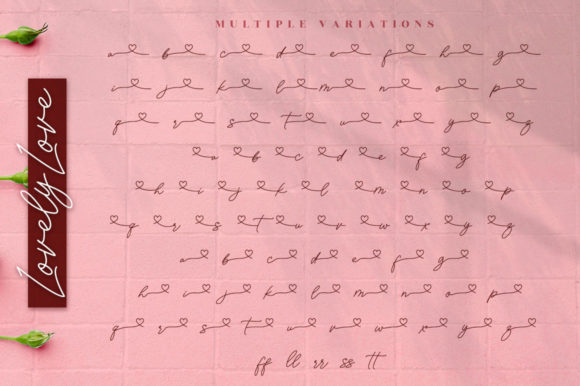 MULTIPLE VARIATIONS
Lovely Love
a b c d e f h g
i j k l m n o p
q r s t u x y z
a b c d e f g
h i j k l m n o p
q r s t u v w x y z
a b c d e f g
h i j k l m n o p
q r s t u v w x y z
ff ll rr ss tt